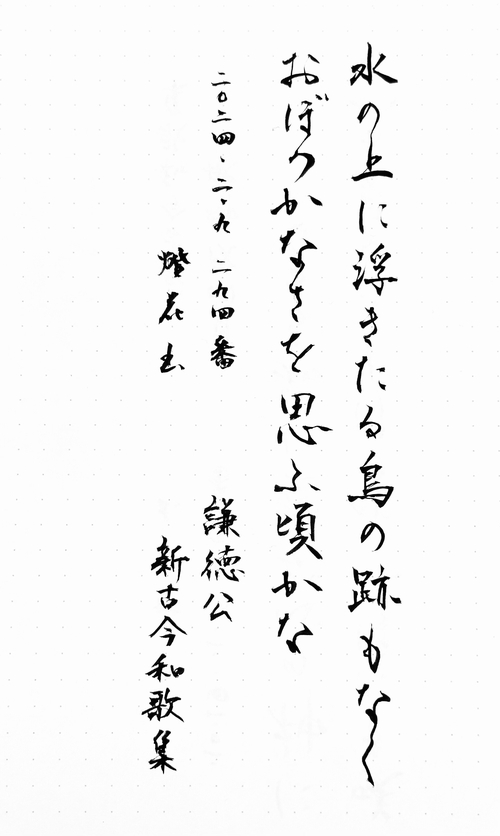 水の上に浮きたる鳥の跡もなく
おぼつかなさを思ふ頃かな
二〇二四、二、九 二九四番
謙徳公
燈花书
新古今和歌集